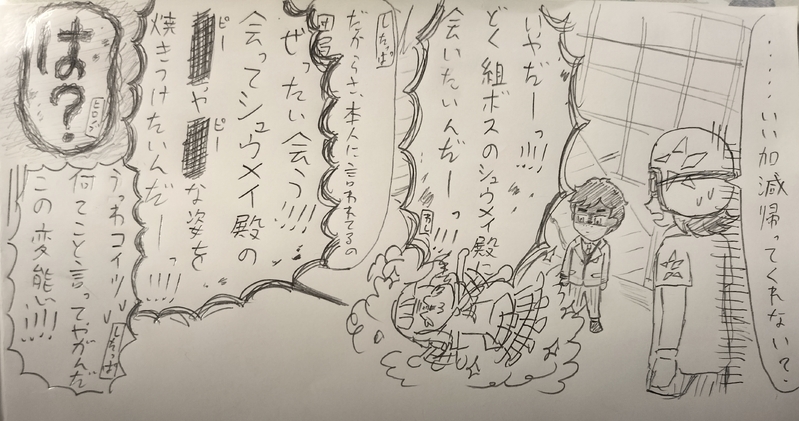 ……いい加減帰ってくれない？
いやだーっ!!!!
どく組ボスのシュウメイ殿に
会いたいんだーっ!!!!
だからさ、本人に言われてるの
ぜったい会う!!!!
会ってシュウメイ殿の
ピー
ピー
や
な姿を
焼きつけたいんだーっ!!!!
は？
うっわコイツ
何てこと言ってやがんだ
この変態い!!!!